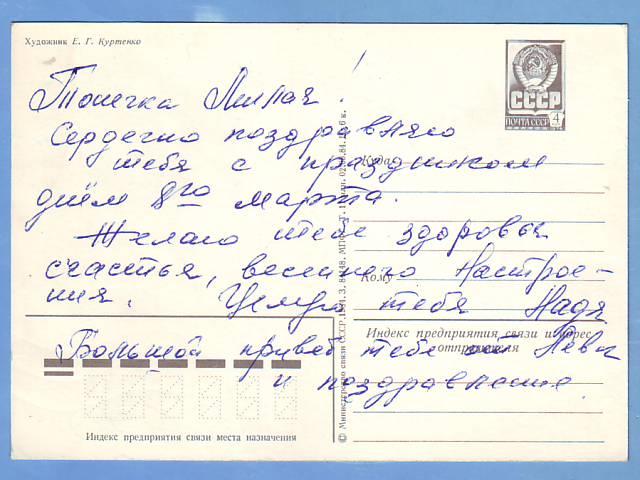 Художник Е. Г. Куртенко
СССР
ПОЧТА СССР 4
Тонечка Милая!
Сердечно поздравляю
тебя с праздником
днём 8го марта.
Желаю тебе здоровья
счастья, весеннего настрое-
ния. Целую тебя Надя
Большой привет тебе от Лёвы
и поздравление
Куда
Кому
Индекс предприятия связи и адрес
отправителя
Индекс предприятия связи места назначения
© Министерство связи СССР.